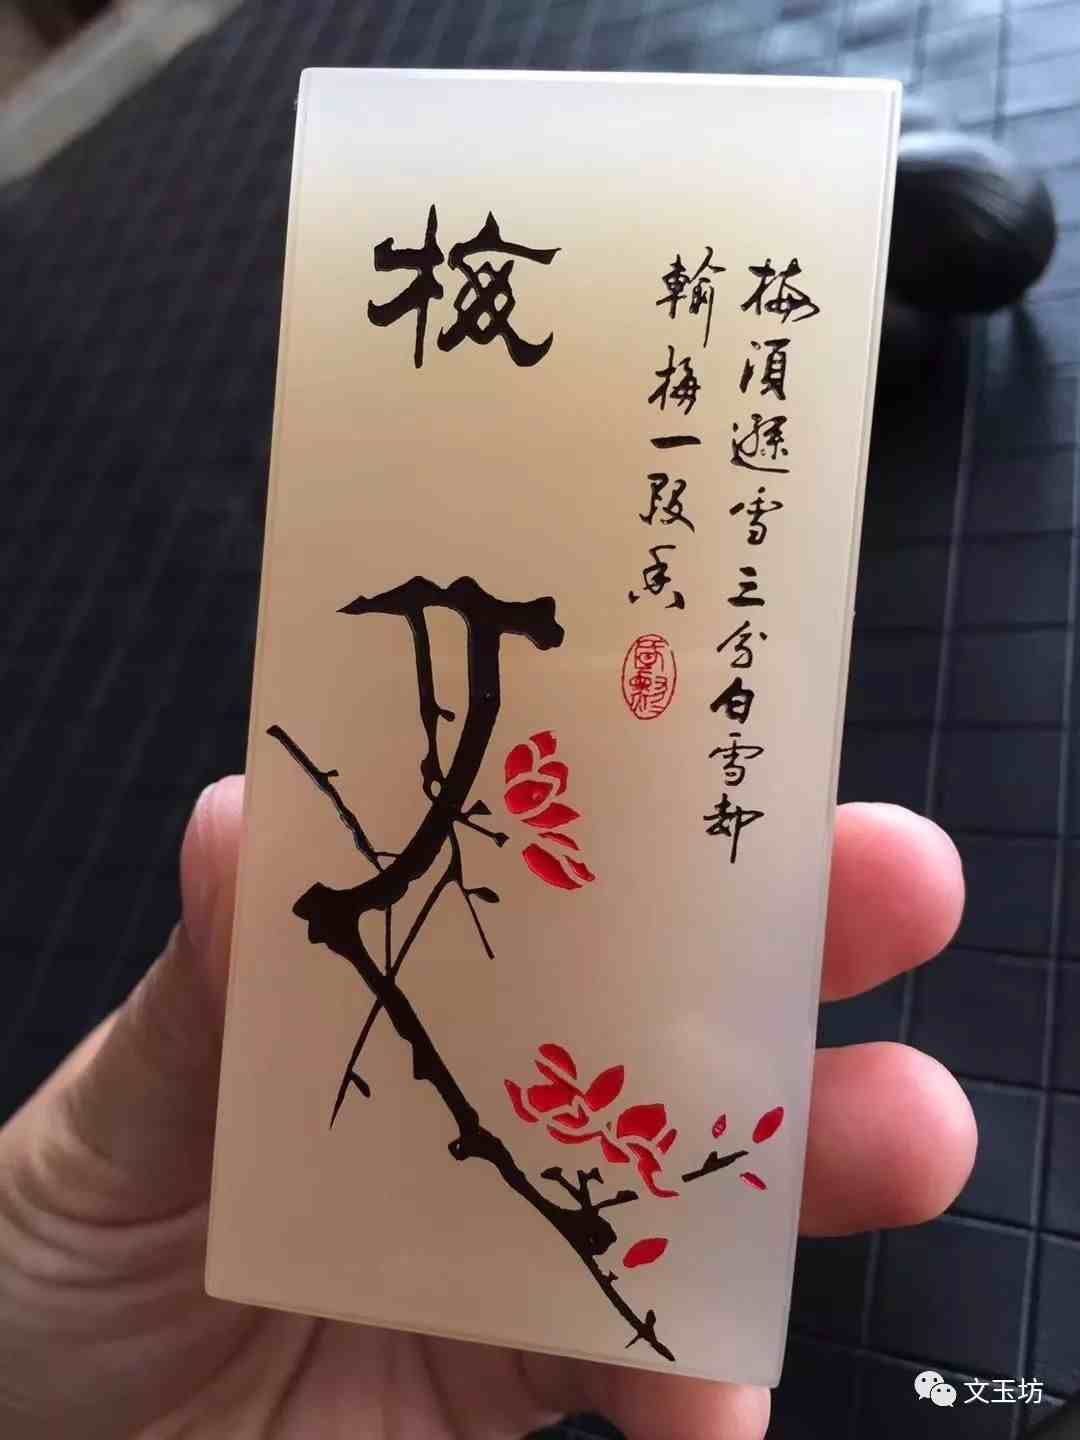 梅
梅須遜雪三分白雪却
輸梅一段香
文玉坊